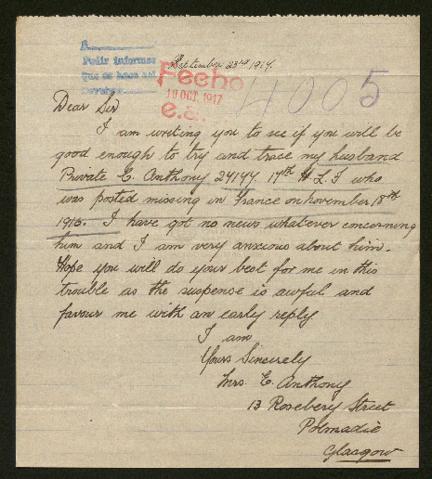 A
Pedir informes
Que se hace así
September 23rd 1917.
Fecho
10 OCT. 1917
e.a.
4005
Dear Sir
I am writing you to see if you will be
good enough to try and trace my husband
Private E. Anthony 27177 17th H L I who
was posted missing in France on november 18th
1916. I have got no news whatever concerning
him and I am very anxious about him.
Hope you will do your best for me in this
trouble as the suspense is awful and
favour me with an early reply
I am
Yours Sincerely
Mrs. E. Anthony
13 Rosebery Street
Polmadie
Glasgow